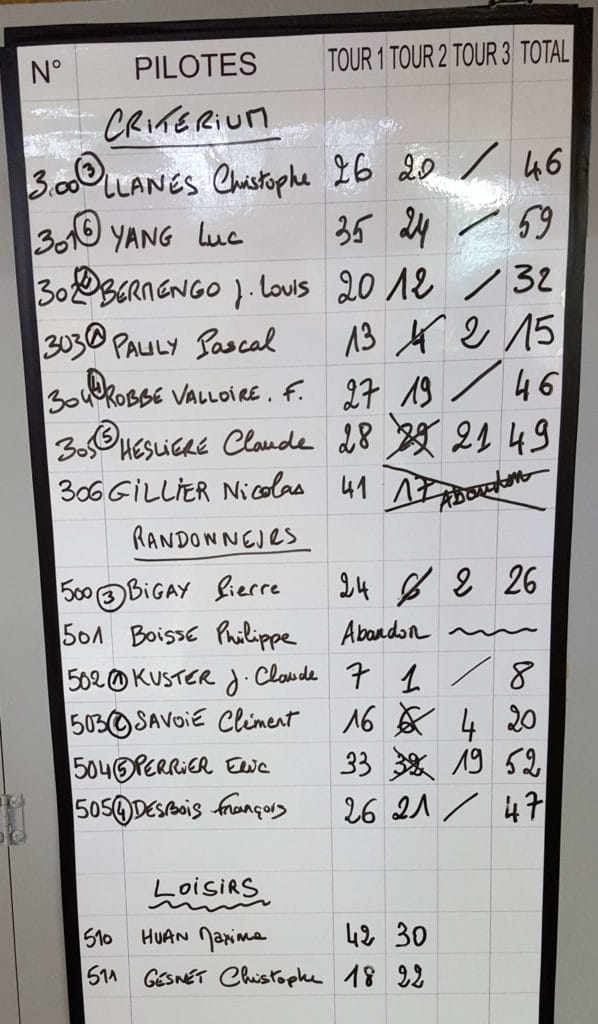 N° PILOTES TOUR 1 TOUR 2 TOUR 3 TOTAL
CRITERIUM
300 3 LLANES Christophe 26 20 / 46
301 6 YANG Luc 35 24 / 59
302 2 BERMENGO J. Louis 20 12 / 32
303 1 PAULY Pascal 13 4 2 15
304 4 ROBBE VALLOIRE. F. 27 19 / 46
305 5 HESLIERE Claude 28 29 21 49
306 GILLIER Nicolas 41 17 Abandon
RANDONNEURS
500 3 BIGAY Pierre 24 6 2 26
501 BOISSE Philippe Abandon
502 1 KUSTER J. Claude 7 1 / 8
503 2 SAVOIE Clément 16 6 4 20
504 5 PERRIER Eric 33 32 19 52
505 4 DESBOIS François 26 21 / 47
LOISIRS
510 HUAN Maxime 42 30
511 GESNET Christophe 18 22